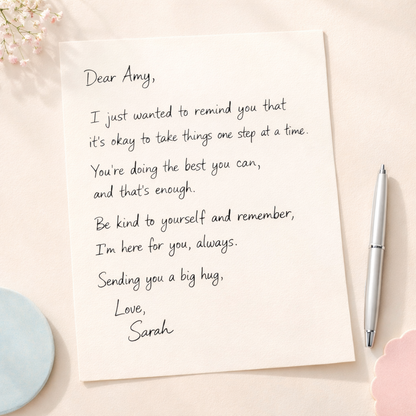 Dear Amy,
I just wanted to remind you that
it's okay to take things one step at a time.
You're doing the best you can,
and that's enough.
Be kind to yourself and remember,
I'm here for you, always.
Sending you a big hug,
Love,
Sarah